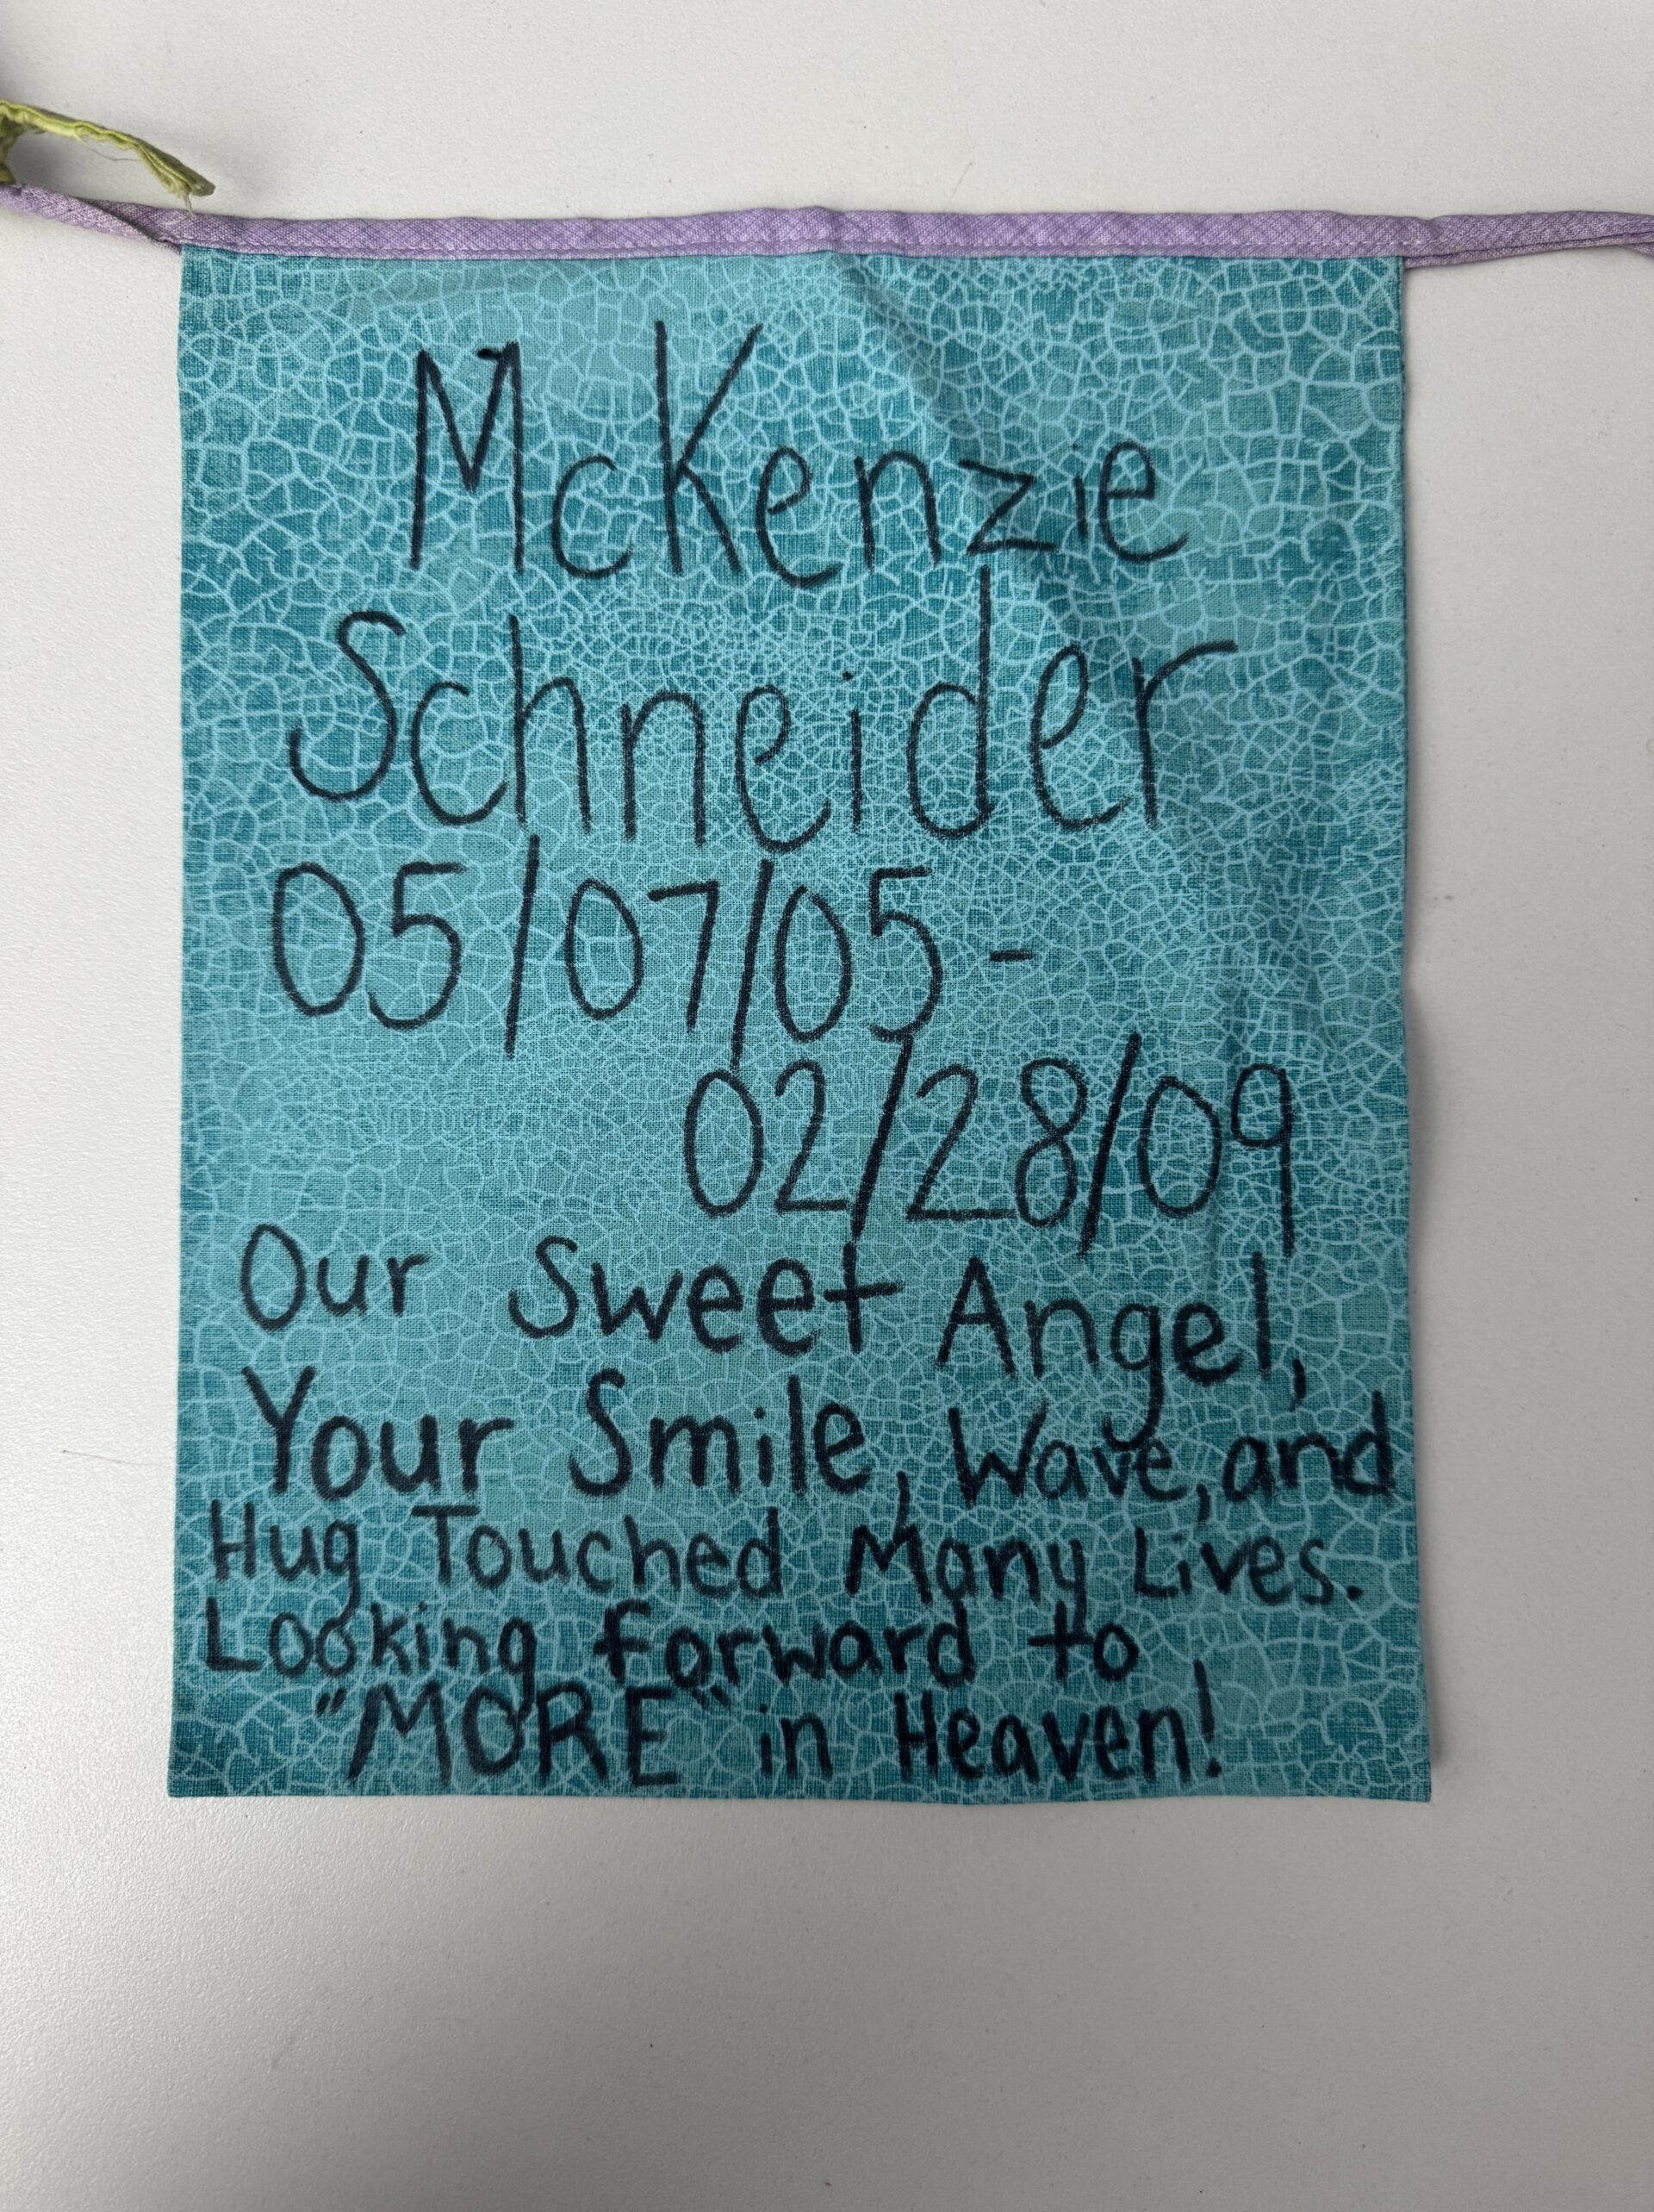 McKenzie
Schneider
05/07/05-
02/28/09
Our Sweet Angel,
Your Smile, Wave, and
Hug Touched Many Lives.
Looking forward to
"MORE" in Heaven!